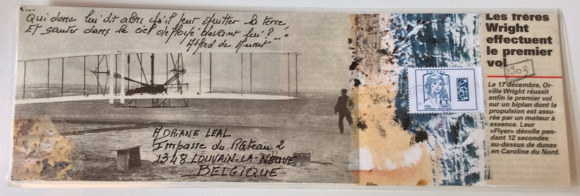 ...
Qui donc lui dit alors qu'il peut quitter la terre,
Et sauter dans le ciel déployé devant lui?..."
Alfred de Musset
ADRIANE LEAL
Impasse du Plateau 2
1348 LOUVAIN-LA-NEUVE
BELGIQUE
Les frères
Wright
effectuent
le premier
vol
1903
Le 17 décembre, Or-
ville Wright réussit
enfin le premier vol
sur un biplan dont la
propulsion est assu-
rée par un moteur à
essence. Leur
«Flyer» décolle pen-
dant 12 secondes
au-dessus de dunes
en Caroline du Nord.